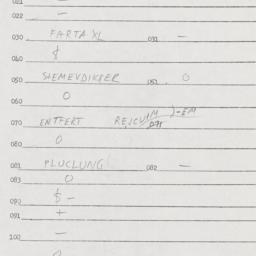 021 —
022 —
030 FARTA XL 031 —
$
040
050 SIEMEVDIKBER 052 0
060 0
070 ENTFERT 071
080 0
081 PLUCLUNG 082 —
083 0
090 $ —
091 +
100 —